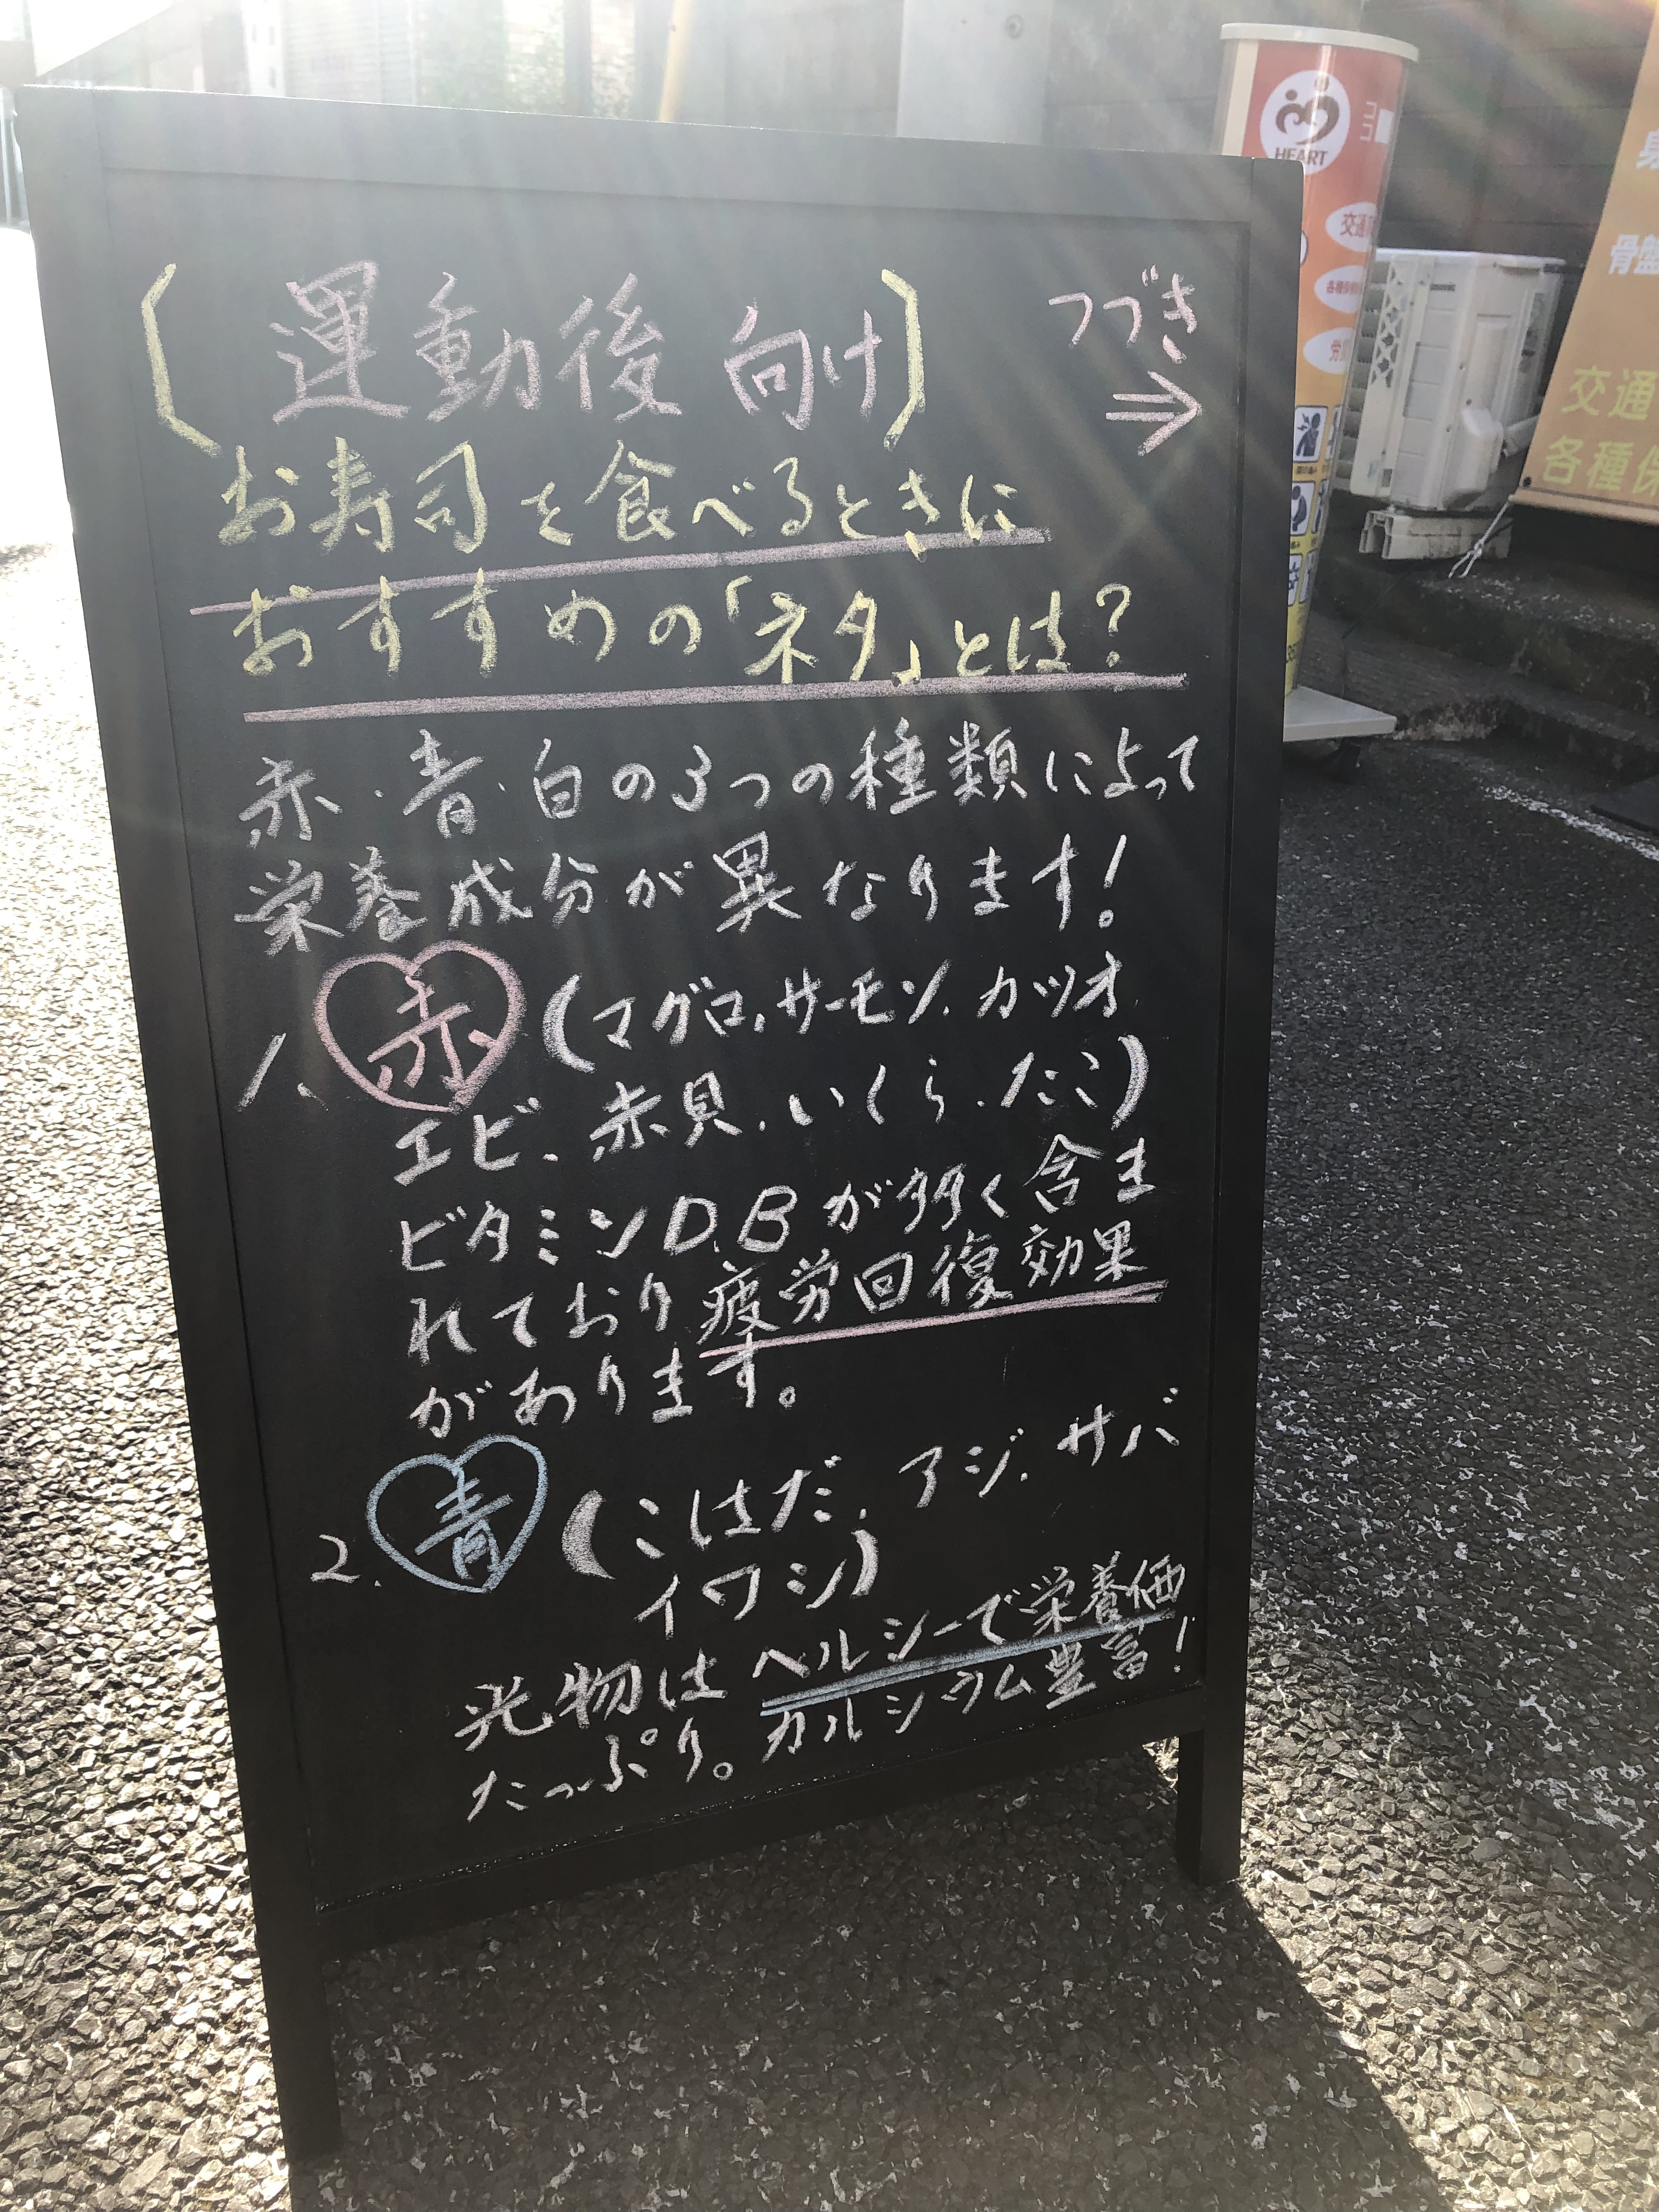 (運動後 向け)
つづき
⇒
お寿司を食べるときに
おすすめの「ネタ」とは?
赤・青・白の3つの種類によって
栄養成分が異なります!
1. 赤 (マグロ、サーモン、カツオ
エビ、赤貝、いくら、たこ)
ビタミンD、Bが多く含ま
れており疲労回復効果
があります。
2. 青 (こはだ、アジ、サバ
イワシ)
光物はヘルシーで栄養価
たっぷり。カルシウム豊富!
HEART
交通
骨盤
交通
各種保